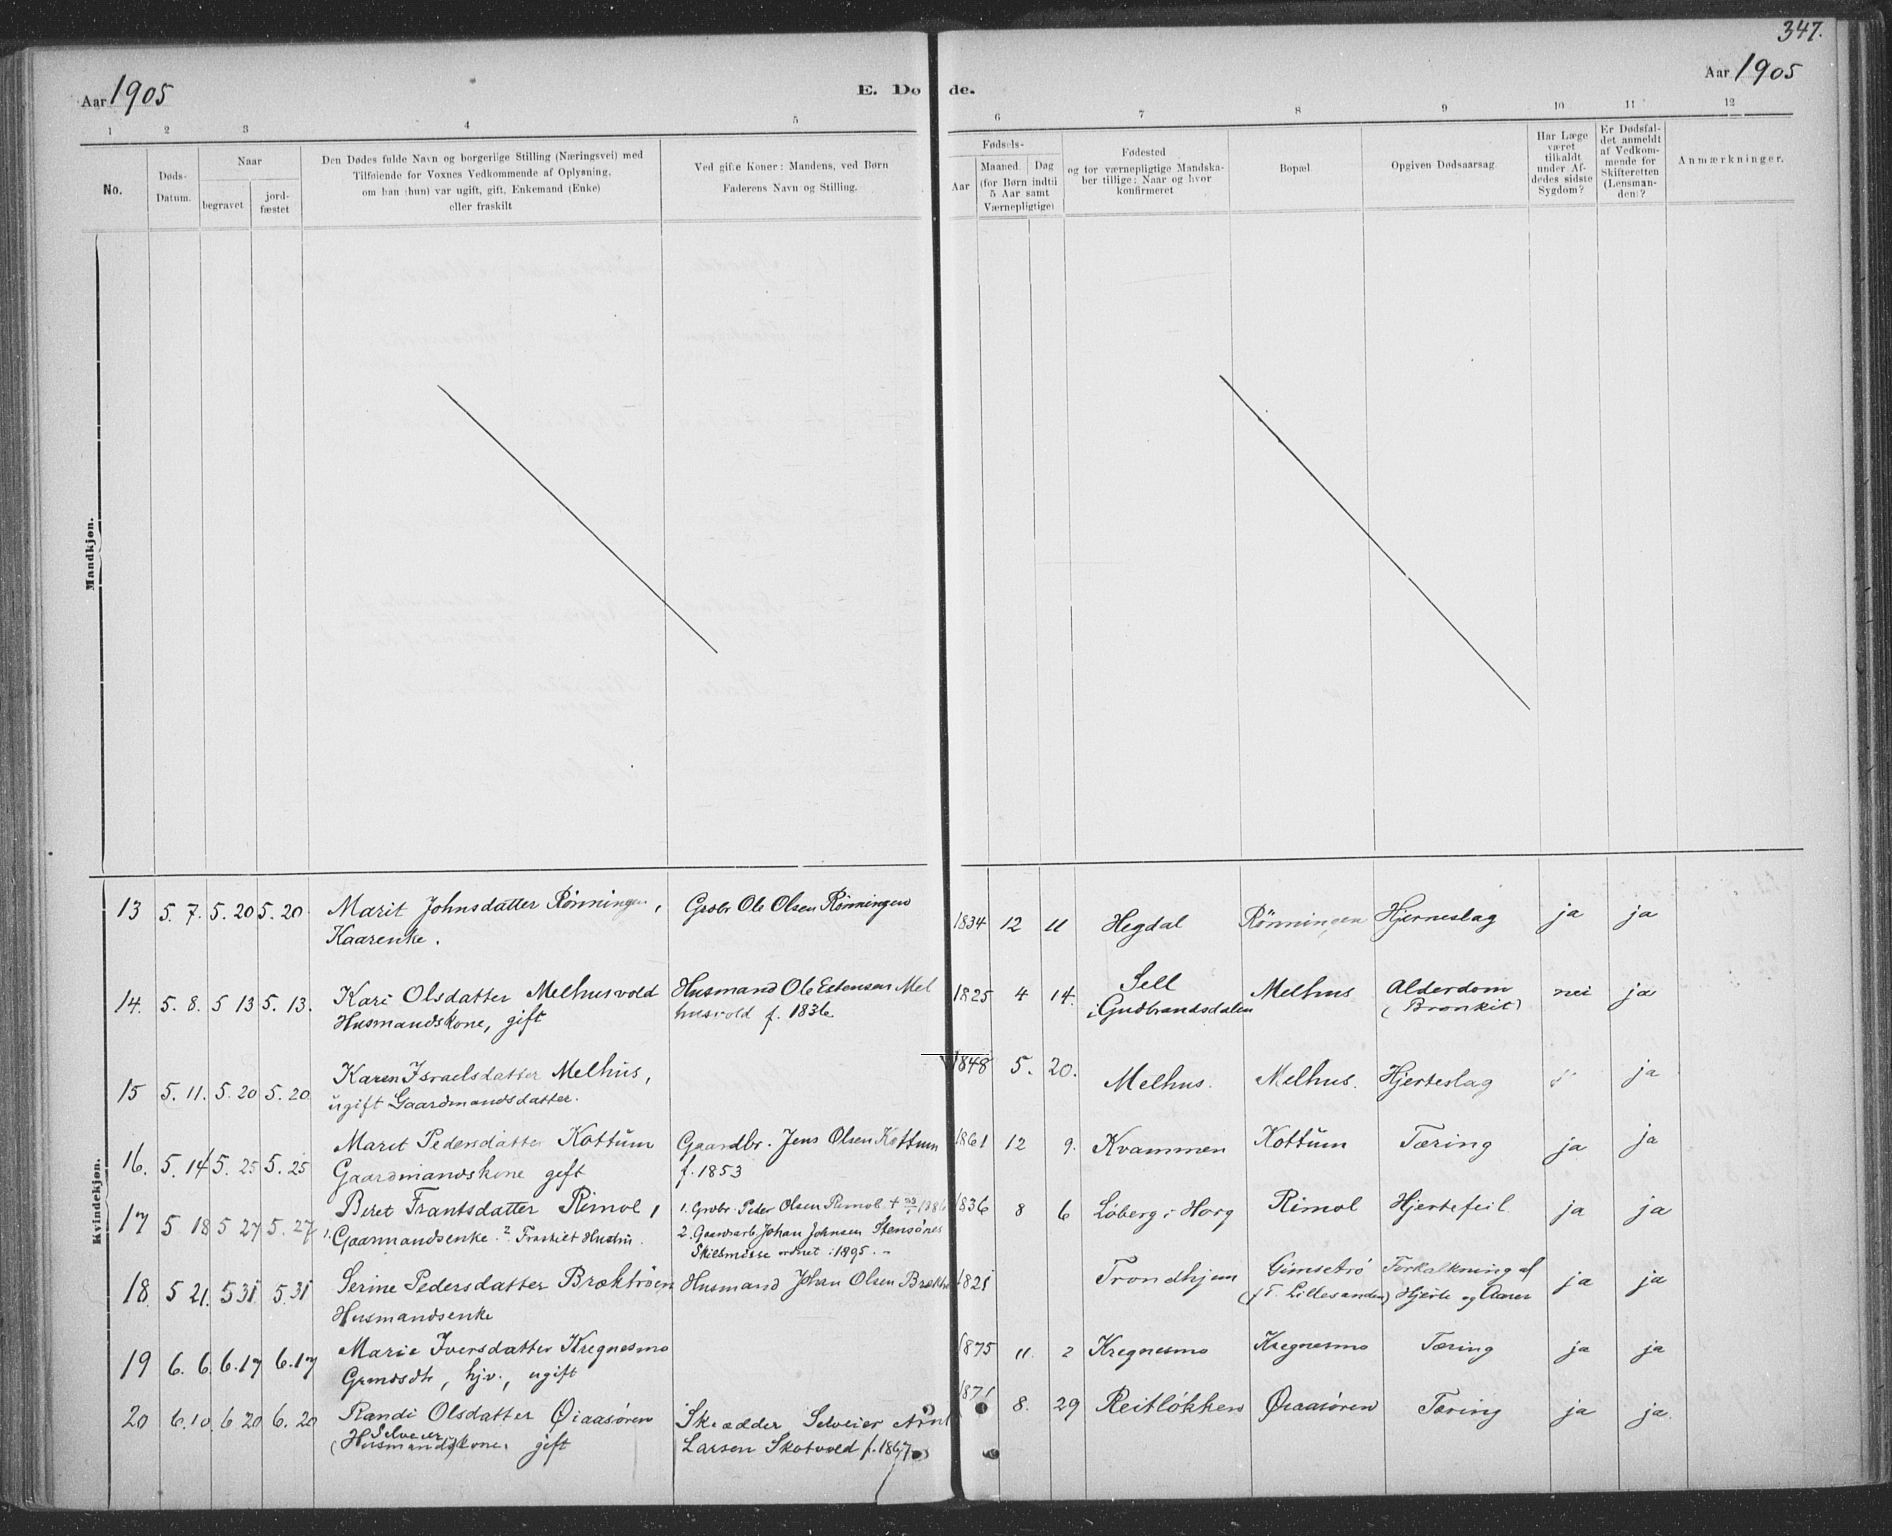 347.
Aar 1905
E. Dø de.
Aar 1905
1 2 3 4 5 6 7 8 9 10 11 12
No.
Døds-
Datum.
Naar
begravet
jord-
fæstet
Den Dødes fulde Navn og borgerlige Stilling (Næringsvei) med
Tilføiende for Voxnes Vedkommende af Oplysning,
om han (hun) var ugift, gift, Enkemand (Enke)
eller fraskilt
Ved gifte Koner: Mandens, ved Børn
Faderens Navn og Stilling.
Fødsels-
Aar
Maaned. Dag
(for Børn indtil
5 Aar samt
Værnepligtige)
Fødested
og for værnepligtige Mandska-
ber tillige: Naar og hvor
konfirmeret
Bopæl.
Opgiven Dødsaarsag.
Har Læge
været
tilkaldt
under Af-
dødes sidste
Sygdom?
Er Dødsfal-
det anmeldt
af Vedkom-
mende for
Skifteretten
(Lensman-
den)?
Anmærkninger.
Mandkjøn.
Kvindekjøn.
13 5. 7. 5. 20 5. 20. Marit Johnsdatter Rönningen, Gaobr Ole Olsen Rönningen 1834 12 11 Hegdal Rönningen Hjerneslag ja ja
Kaarenke.
14. 5. 8. 5 13 5. 13. Kari Olsdatter Melhusvold Husmand Ole Estensen Mel 1825 4 14. Sell Melhus Alderdom nei ja
Husmandskone, gift husvold f. 1836 i Gudbrandsdalen (Bronkit)
15 5. 11. 5. 20 5. 20 Karen Israelsdatter Melhus, 1848 5. 20. Melhus. Melhus. Hjerteslag ja
ugift Gaardmandsdatter.
16. 5. 14 5. 25 5. 25 Marit Pedersdatter Kottum Gaardbr. Jens Olsen Kottum 1861 12 9. Kvammen Kottum Tæring ja ja
Gaardmandskone gift f. 1853
17 5 18 5 27 5. 27 Beret Frantsdatter Rimol, 1. Grobr. Peder Olsen Rimol + 1836 8 6 Löberg i Horg Rimol Hjertefeil ja ja
1. Gaarmandsenke. 2 Fraskilt Hustru. 2. Gaardarb Johan Johnsen Stensönes
Skilsmisse ordnet i 1895. -
18. 5 21. 5 31. 5. 31 Serine Pedersdatter Bræktröen Husmand Johan Olsen 1821 Trondhjem Gimsetrö Forkalkning af ja ja
Husmandsenke (f. Lillesanden) Hjerte og Aarer
19 6. 6. 6. 17 6. 17 Marie Iversdatter Kregnesmo 1875 11. 2 Kregnesmo Kregnesmo Tæring ja ja
hjv., ugift
20 6. 10. 6 20 6. 20 Randi Olsdatter Øiaasøren Skrædder Selveier Arnt 1871 8. 29 Reitløkken Øiaasøren Tæring ja ja.
Selveier
(Husmands)kone. gift Larsen Skotvold f. 1867